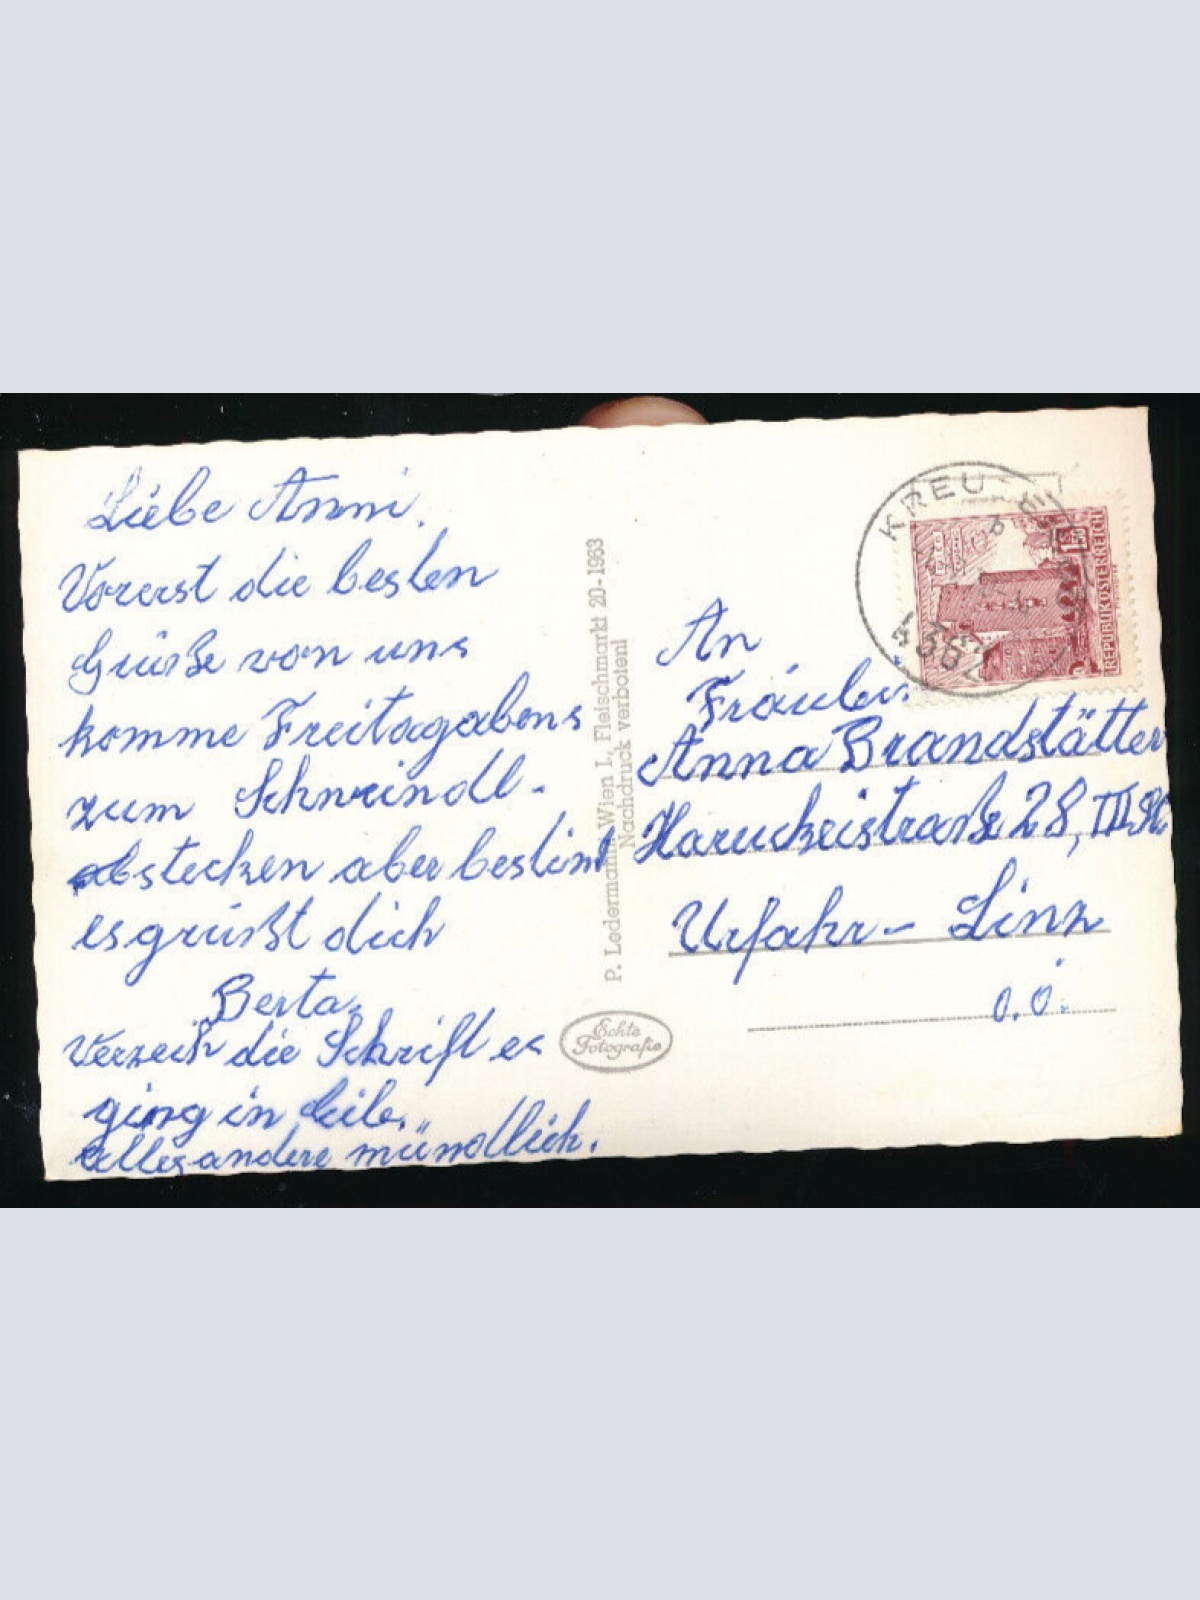 Liebe Anni.
Vorerst die besten
Grüße von uns
komme Freitagabens
zum Schwindl-
abstecken aber bestimt
es grüßt dich
Berta.
Verzeih die Schrift es
ging in Eile.
alles andere mündlich.
P. Ledermann, Wien I., Fleischmarkt 20-1963
Nachdruck verboten!
Echte
Fotografie
KREU
REPUBLIK ÖSTERREICH
An
Fräulein
Anna Brandstätter
Haruckeistraße 28, III St
Urfahr- Linz
O.Ö.